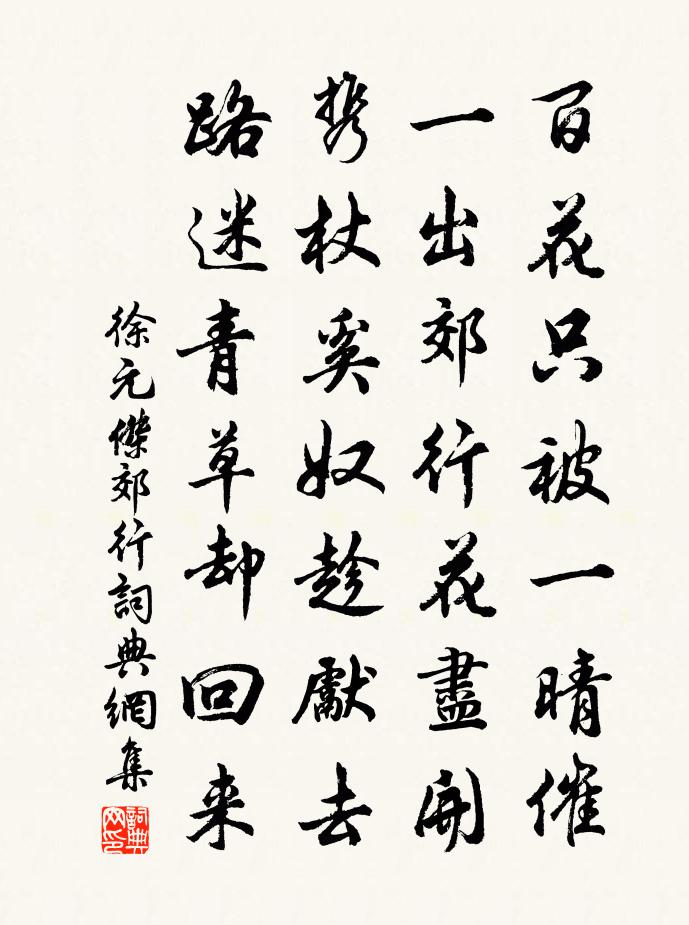 百花只被一晴催
一出郊行花盡開
携杖奚奴趁獻去
路迷青草却回来
徐元傑郊行詞典網集
詞典网印